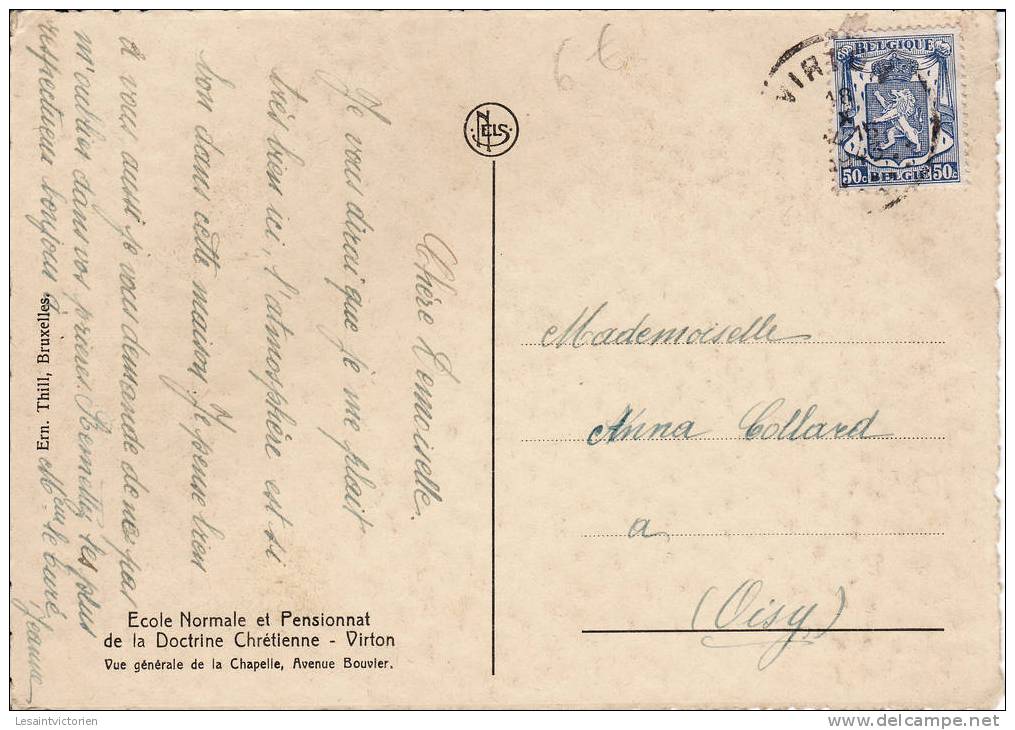 Chère Demoiselle.
Je vous dirai que je me plait
très bien ici, l'atmosphère est si
bon dans cette maison. Je pense bien
à vous aussi je vous demande de ne pas
m'oublier dans vos prières. Remettez les plus
respectueux bonjour à Mr le Curé
Jeanne
Ern. Thill, Bruxelles.
Ecole Normale et Pensionnat
de la Doctrine Chrétienne - Virton
Vue générale de la Chapelle, Avenue Bouvier.
NELS
6 €
BELGIQUE
50c BELGIË 50c
VIRT
18
X
Mademoiselle
Anna Collard
a
(Oisy)
Lesaintvictorien
www.delcampe.net